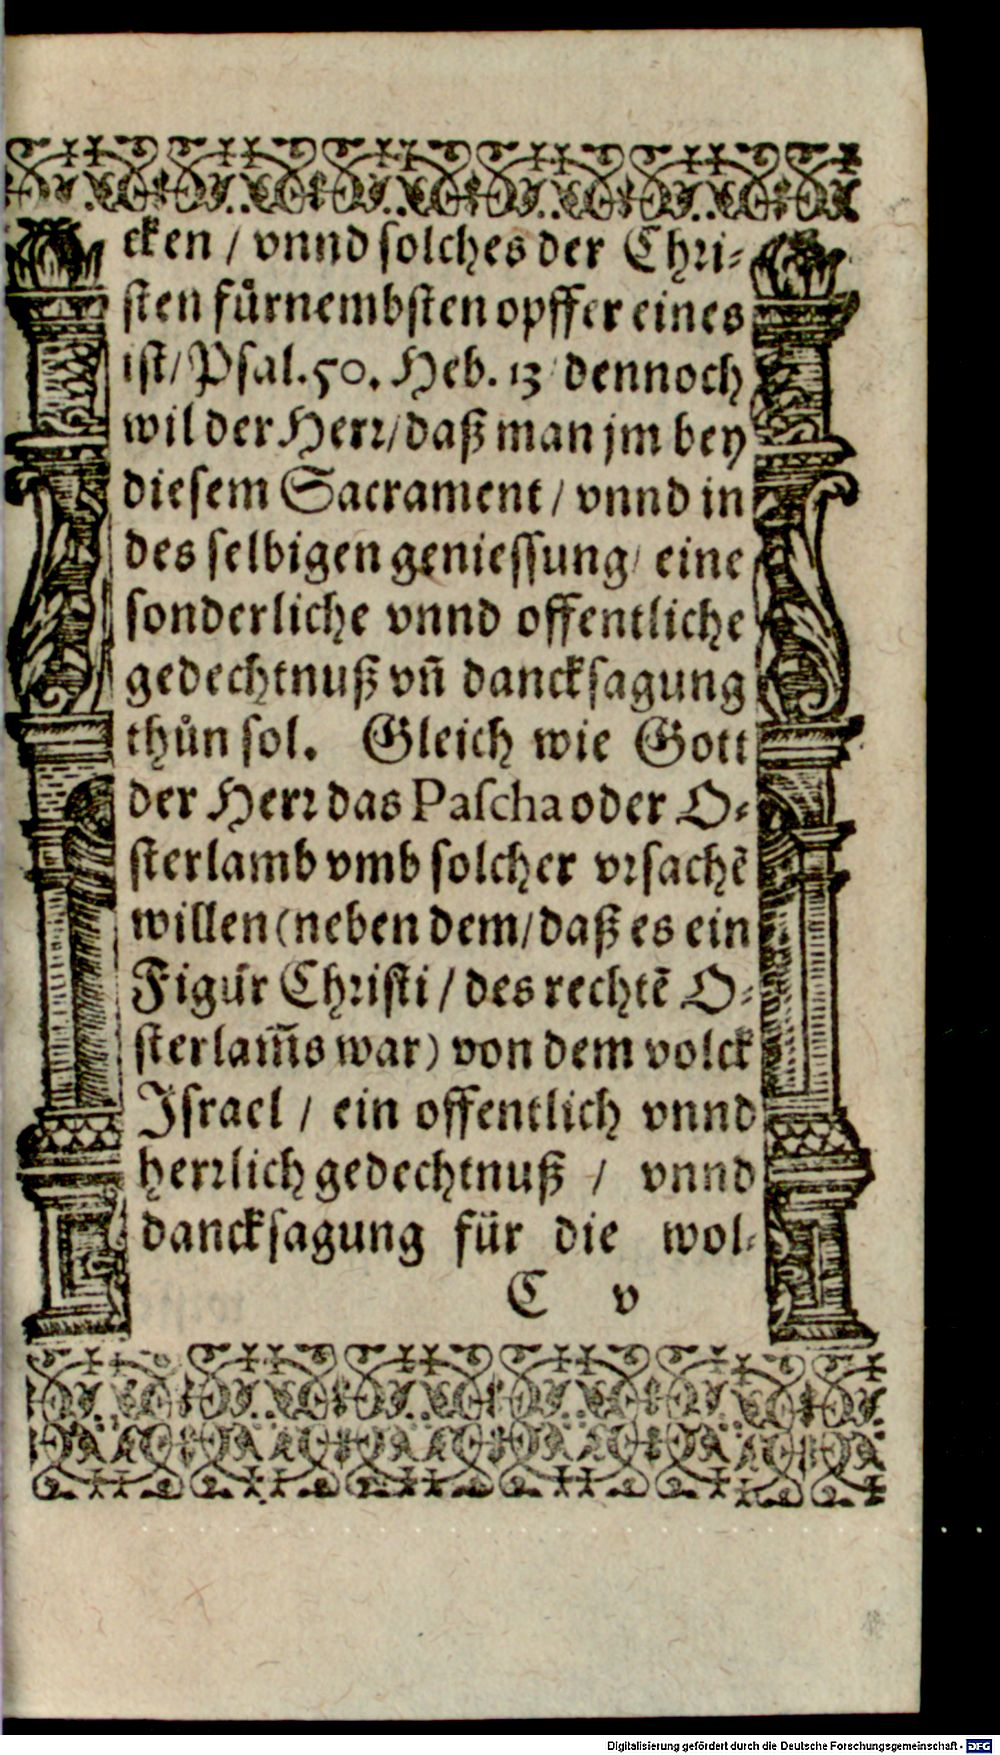 cken / vnnd solches der Chri-
sten fürnembsten opffer eines
ist/ Psal. 50. Heb. 13 dennoch
wil der Herr/ daß man jm bey
diesem Sacrament / vnnd in
des selbigen geniessung/ eine
sonderliche vnnd offentliche
gedechtnuß vñ dancksagung
thůn sol. Gleich wie Gott
der Herr das Pascha oder O-
sterlamb vmb solcher vrsachẽ
willen (neben dem/ daß es ein
Figůr Christi / des rechtẽ O-
sterlam̃s war) von dem volck
Israel / ein offentlich vnnd
herrlich gedechtnuß / vnnd
dancksagung für die wol-
C v
Digitalisierung gefördert durch die Deutsche Forschungsgemeinschaft - DFG